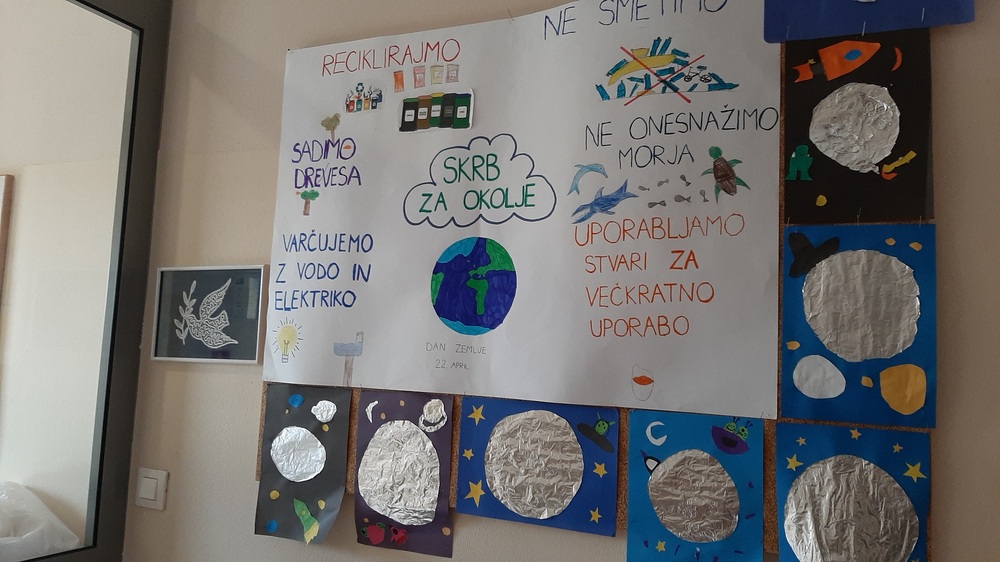 RECIKLIRAJMO
NE SMETIMO
SADIMO
DREVESA
SKRB
ZA OKOLJE
NE ONESNAŽIMO
MORJA
VARČUJEMO
Z VODO IN
ELEKTRIKO
UPORABLJAMO
STVARI ZA
VEČKRATNO
UPORABO
DAN ZEMLJE
22. APRIL